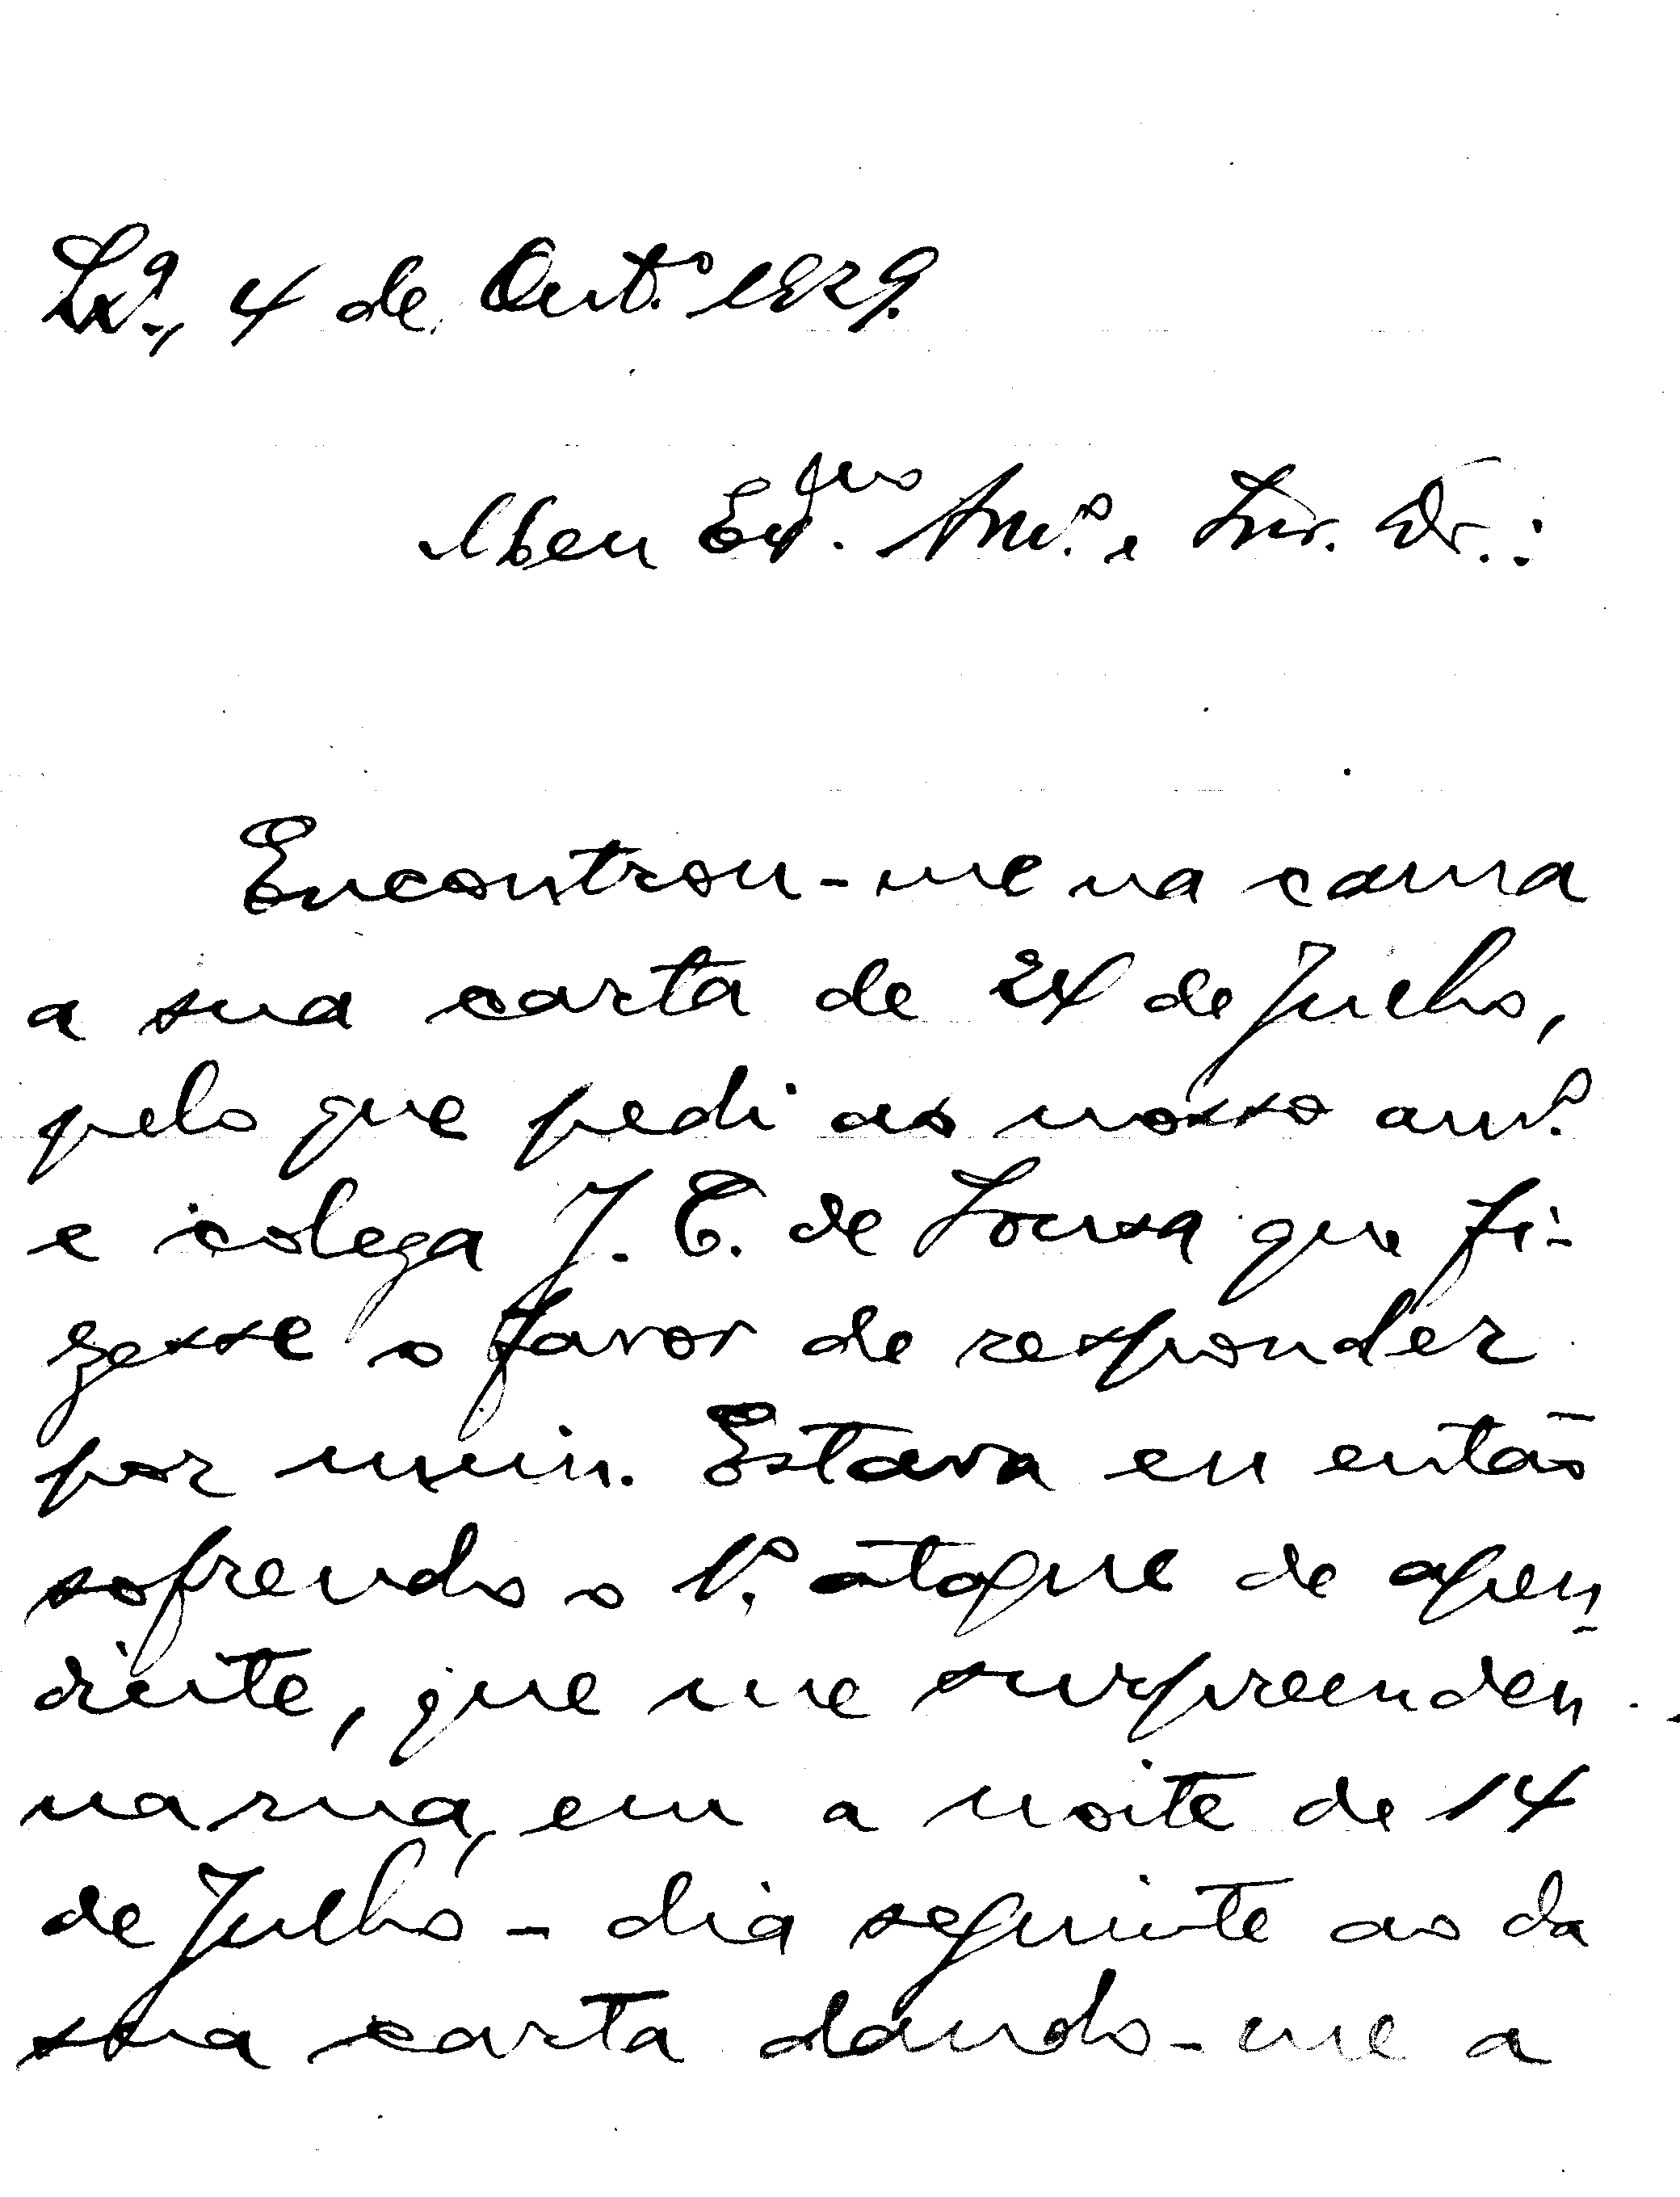 Lxª., 4 de Outº. 1929.
Meu Exmo. Amº. e Snr. Dr.:
Encontrou-me na cama
a sua carta de 24 de Julho,
pelo que pedi ao nosso amº.
e colega J. C. de Sousa que fi-
zesse o favor de responder
por mim. Estava eu então
sofrendo o 1º. ataque de apen
dicite, que me surpreendeu
na rua, em a noite de 14
de Julho - dia seguinte ao da
sua carta dando-me a